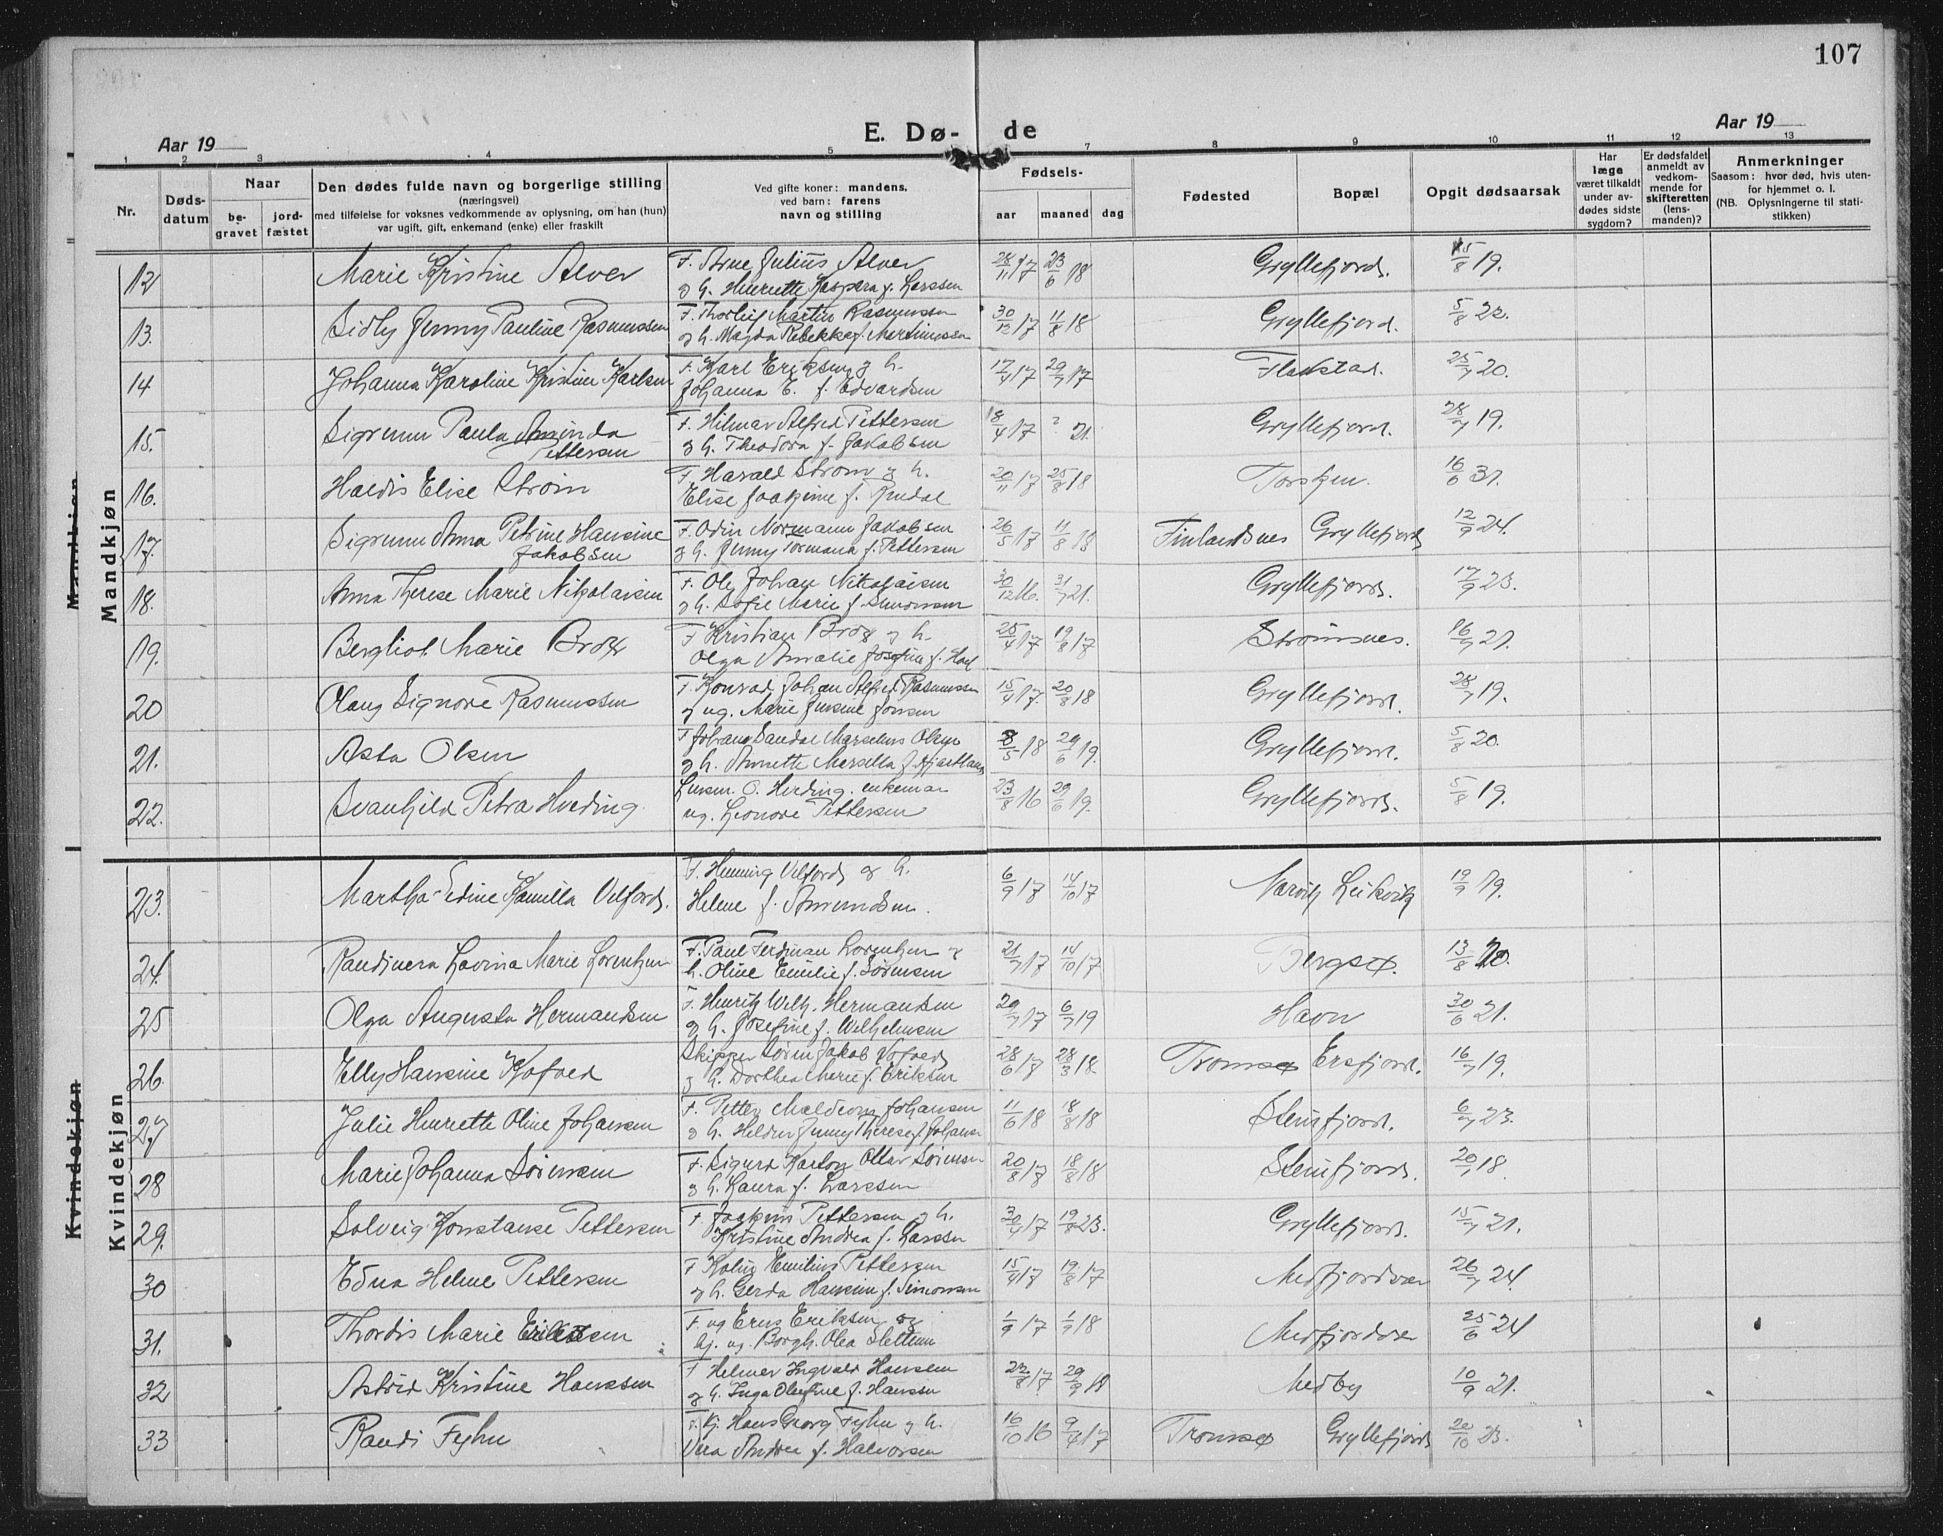 107
Aar 19
E. Dø- de
Aar 19
1 2 3 4 5 7 8 9 10 11 12 13
Nr.
Døds-
datum
Naar
be-
gravet
jord-
fæstet
Den dødes fulde navn og borgerlige stilling
(næringsvei)
med tilføielse for voksnes vedkommende av oplysning, om han (hun)
var ugift, gift, enkemand (enke) eller fraskilt
Ved gifte koner: mandens,
ved barn: farens
navn og stilling
Fødsels-
aar maaned dag
Fødested
Bopæl
Opgit dødsaarsak
Har
læge
været tilkaldt
under av-
dødes sidste
sygdom?
Er dødsfaldet
anmeldt av
vedkom-
mende for
skifteretten
(lens-
manden)?
Anmerkninger
Saasom: hvor død, hvis uten-
for hjemmet o. l.
(NB. Oplysningerne til stati-
stikken)
Mandkjøn
Mandkjøn
12 Marie Kristine Alver F. Arne Julius Alver 28/11 17 23/6 18 Gryllefjord. 15/8 19.
og h. Henriette Kaspara f. Larssen
13. Sidly Jenny Pauline Rasmussen F. Thorleif Martin Rasmussen 30/12 17 11/8 18 Gryllefjord. 5/8 22.
og h. Magda Rebekka f. Martinussen
14 Johanna Karoline Kristine Karlsen F. Karl Eriksen og h. 17/4 17 29/7 17 Flakstad. 25/7 20.
Johanna E. f. Edvardsen
15. Sigrunn Paula Aminda F. Hilmar Alfred Pettersen 18/4 17 ? 21. Gryllefjord. 28/7 19.
Pettersen og h. Theodora f. Jakobsen
16. Haldis Elise Strøm F. Harald Strøm og h. 20/11 17 25/8 18 Torsken. 16/6 31.
Elise Joakime f.
17. Sigrunn Anna Petrine Hansine F. Odin Normann Jakobsen 26/5 17 11/8 18 Finlandsnes Gryllefjord 12/9 24.
Jakobsen og h. Jenny Normana f. Pettersen
18. Anna Therese Marie Nikolaisen F. Ole Johan Nikolaisen 30/12 16. 31/7 21. Gryllefjord. 17/9 23.
og h. Sofie Marie f. Simonsen
19. Bergliot Marie Brox F Kristian Brox og h. 25/4 17 19/8 17 Strømsnes. 16/7 21.
Olga Amalie Josefine f.
20 Olaug Signore Rasmussen F. Konrad Johan Alfred Rasmussen 15/4 17. 20/8 18 Gryllefjord. 28/7 19.
og ug. Marie Jensine Jensen
21. Asta Olsen F Johan Sandal Marselius Olsen 8/5 18 29/6 19. Gryllefjord. 5/8 20.
og h. Annette Marsella f.
22. Svanhild Petra Hveding. Lensm. O. Hveding. enkeman 23/8 16 29/6 19. Gryllefjord. 5/8 19.
ug. Leonore Pettersen
Kvindekjøn
Kvindekjøn
23. Martha Edine Kamilla Vilfords. F. Henning Vilfords og h. 6/9 17 14/10 17 Narvik Leikvik 19/9 19.
Helene f. Amundsen.
24. Randinera Lovina Marie Lorentzen F. Paul Ferdinan Lorentzen og 21/7 17 14/10 17 Bergsø. 13/8 20.
h. Oline Emilie f. Sørensen
25 Olga Augusta Hermansen F. Henrik Wilh. Hermansen 29/7 17 6/7 19 Havn 30/6 21.
og h. Josefine f. Wilhelmsen
26. Elly Hansine Kofoed Skipper Søren Jakob Kofoed 28/6 17 28/3 18. Tromsø Ersfjord. 16/7 19.
og h. Dorthea Marie f. Eriksen
27 Julie Henriette Oline Johansen F. Petter Johansen 11/6 18 18/8 18 Stensfjord. 6/7 23.
og h. Helder Jenny Therese f. Johans
28 Marie Johanna Sørensen F. Sigurd Karton Ottar Sørensen 20/8 17 18/8 18 Stensfjord. 29/7 18.
og h. Laura f. Larssen
29. Solveig Konstanse Pettersen F Joakim Pettersen og h. 30/4 17 19/8 23. Gryllefjord. 15/7 21.
Kristine Andrea f. Larssen
30 Edna Helene Pettersen F Kolin Emilius Pettersen 15/4 17 19/8 17 Medfjordvær 26/7 24
og h. Gerda Hansine f. Simonsen
31. Thordis Marie Eriksen F. ug Enus Eriksen og 1/9 17 1/9 18 Medfjordvær 25/6 24
pj. ug. Borgh. Olea Slettum
32 Astrid Kristine Hanssen F Helmer Ingvald Hanssen 22/8 17 29/9 18 Medby 10/9 21.
og h. Inga Olufine f. Hanssen
33 Randi Fyhn F. Kj. Hans Georg Fyhn og h. 16/10 16 9/4 17 Tromsø Gryllefjord 20/10 23.
Vera Andrea f. Halvorsen